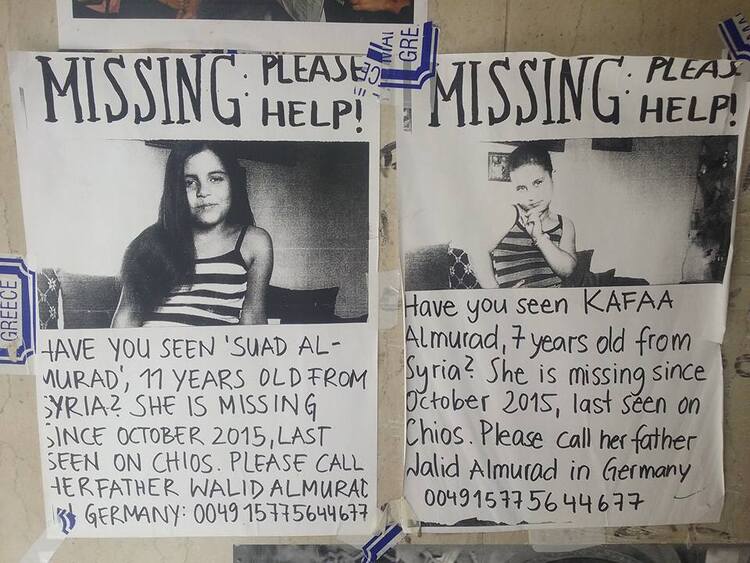 MISSING: PLEASE
HELP!
HAVE YOU SEEN 'SUAD AL-
MURAD', 11 YEARS OLD FROM
SYRIA? SHE IS MISSING
SINCE OCTOBER 2015, LAST
SEEN ON CHIOS. PLEASE CALL
HER FATHER WALID ALMURAD
GERMANY: 004915775644677
MISSING: PLEASE
HELP!
Have you seen KAFAA
Almurad, 7 years old from
Syria? She is missing since
October 2015, last seen on
Chios. Please call her father
Walid Almurad in Germany
004915775644677
GREECE
GRE